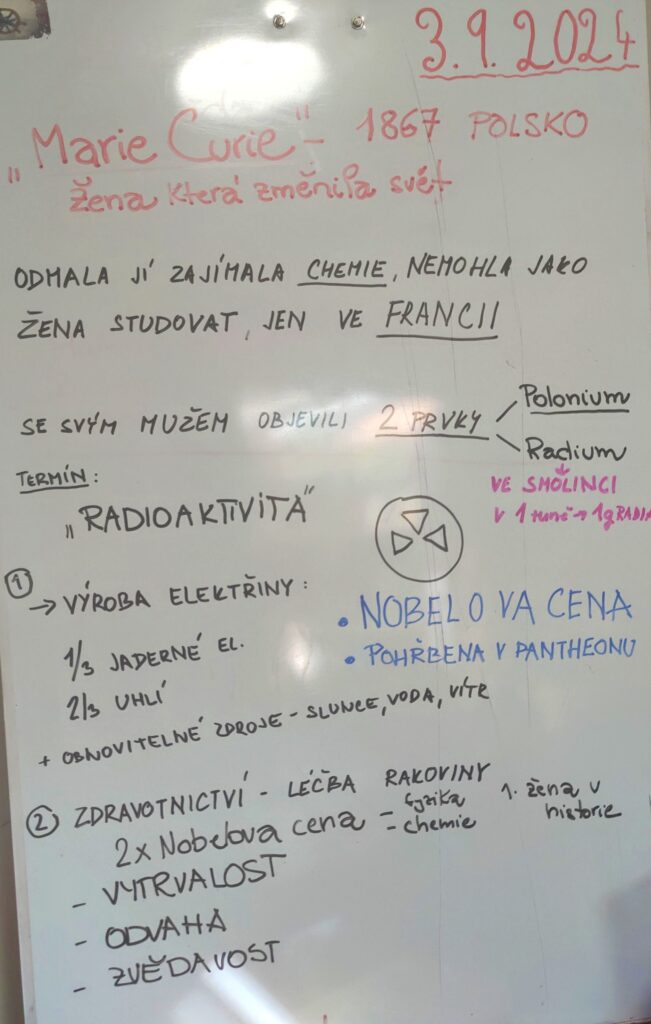 3.9.2024
„Marie Curie" - 1867 POLSKO
žena která změnila svět
ODMALA JÍ ZAJÍMALA CHEMIE, NEMOHLA JAKO
ŽENA STUDOVAT, JEN VE FRANCII
SE SVÝM MUŽEM OBJEVILI 2 PRVKY
Polonium
Radium
VE SMOLINCI
v 1 tuně → 1g RADIA
TERMÍN:
„RADIOAKTIVITA"
① → VÝROBA ELEKTŘINY:
1/3 JADERNÉ EL.
2/3 UHLÍ
+ OBNOVITELNÉ ZDROJE - SLUNCE, VODA, VÍTR
• NOBELOVA CENA
• POHŘBENA V PANTHEONU
② ZDRAVOTNICTVÍ - LÉČBA RAKOVINY
2x Nobelova cena = fyzika
= chemie
1. žena v
historie
- VYTRVALOST
- ODVAHA
- ZVĚDAVOST